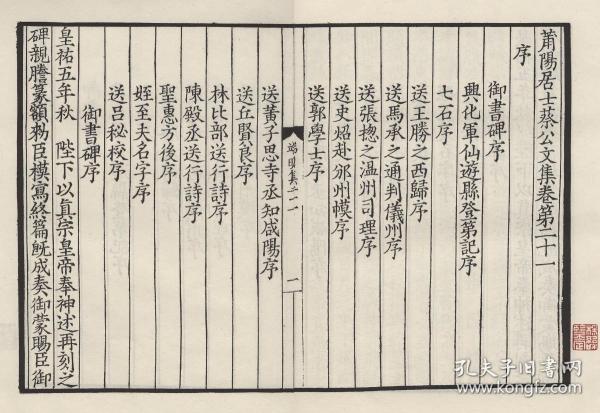 莆陽居士蔡公文集卷第二十一
序
御書碑序
興化軍仙遊縣登第記序
七石序
送王勝之西歸序
送馬承之通判儀州序
送張揔之温州司理序
送史炤赴邠州幙序
送郭學士序
端明集二一
一
送黃子思寺丞知咸陽序
送丘賢良序
林比部送行詩序
陳殿丞送行詩序
聖惠方後序
姪至夫名字序
送呂秘校序
御書碑序
皇祐五年秋 陛下以真宗皇帝奉神述再刻之
碑親謄篆額勑臣模寫終篇旣成奏御蒙賜臣御
孔夫子旧书网
www.kongfz.com